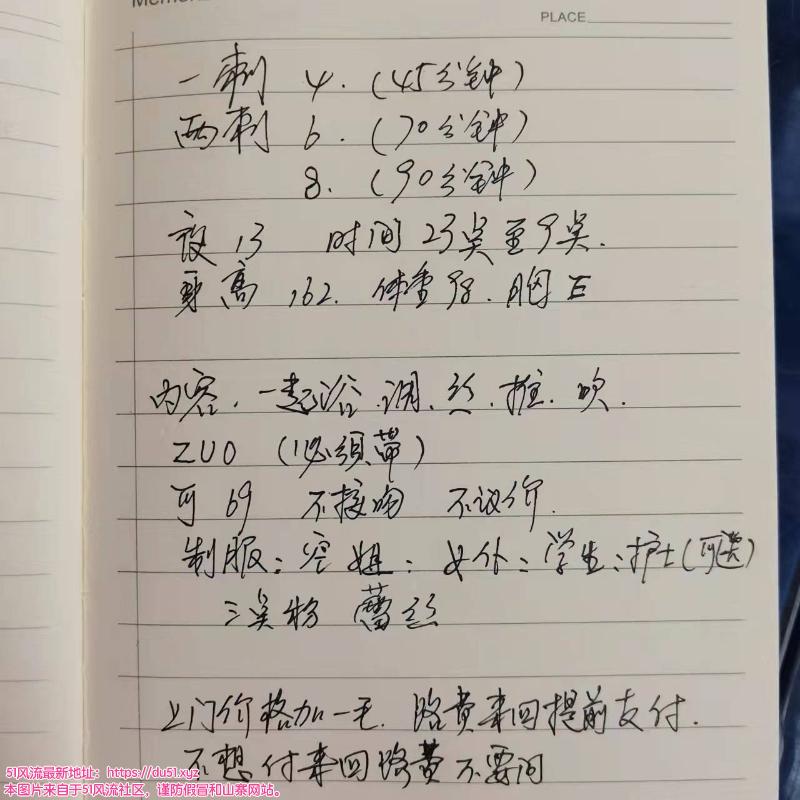 PLACE
一刺 4. (45分钟)
两刺 6. (70分钟)
8. (90分钟)
夜 13 时间 23点至9点.
身高 162. 体重 98. 胸 E
内容. 一起浴. 调. 丝. 推. 吹.
ZUO (必须带)
可 69 不接吻 不议价.
制服: 空姐: 女仆: 学生: 护士(可选)
三点粉 蕾丝
上门价格加一毛. 路费来回提前支付.
不想付来回路费不要问
51风流最新地址: https://du51.xyz
本图片来自于51风流社区, 谨防假冒和山寨网站。